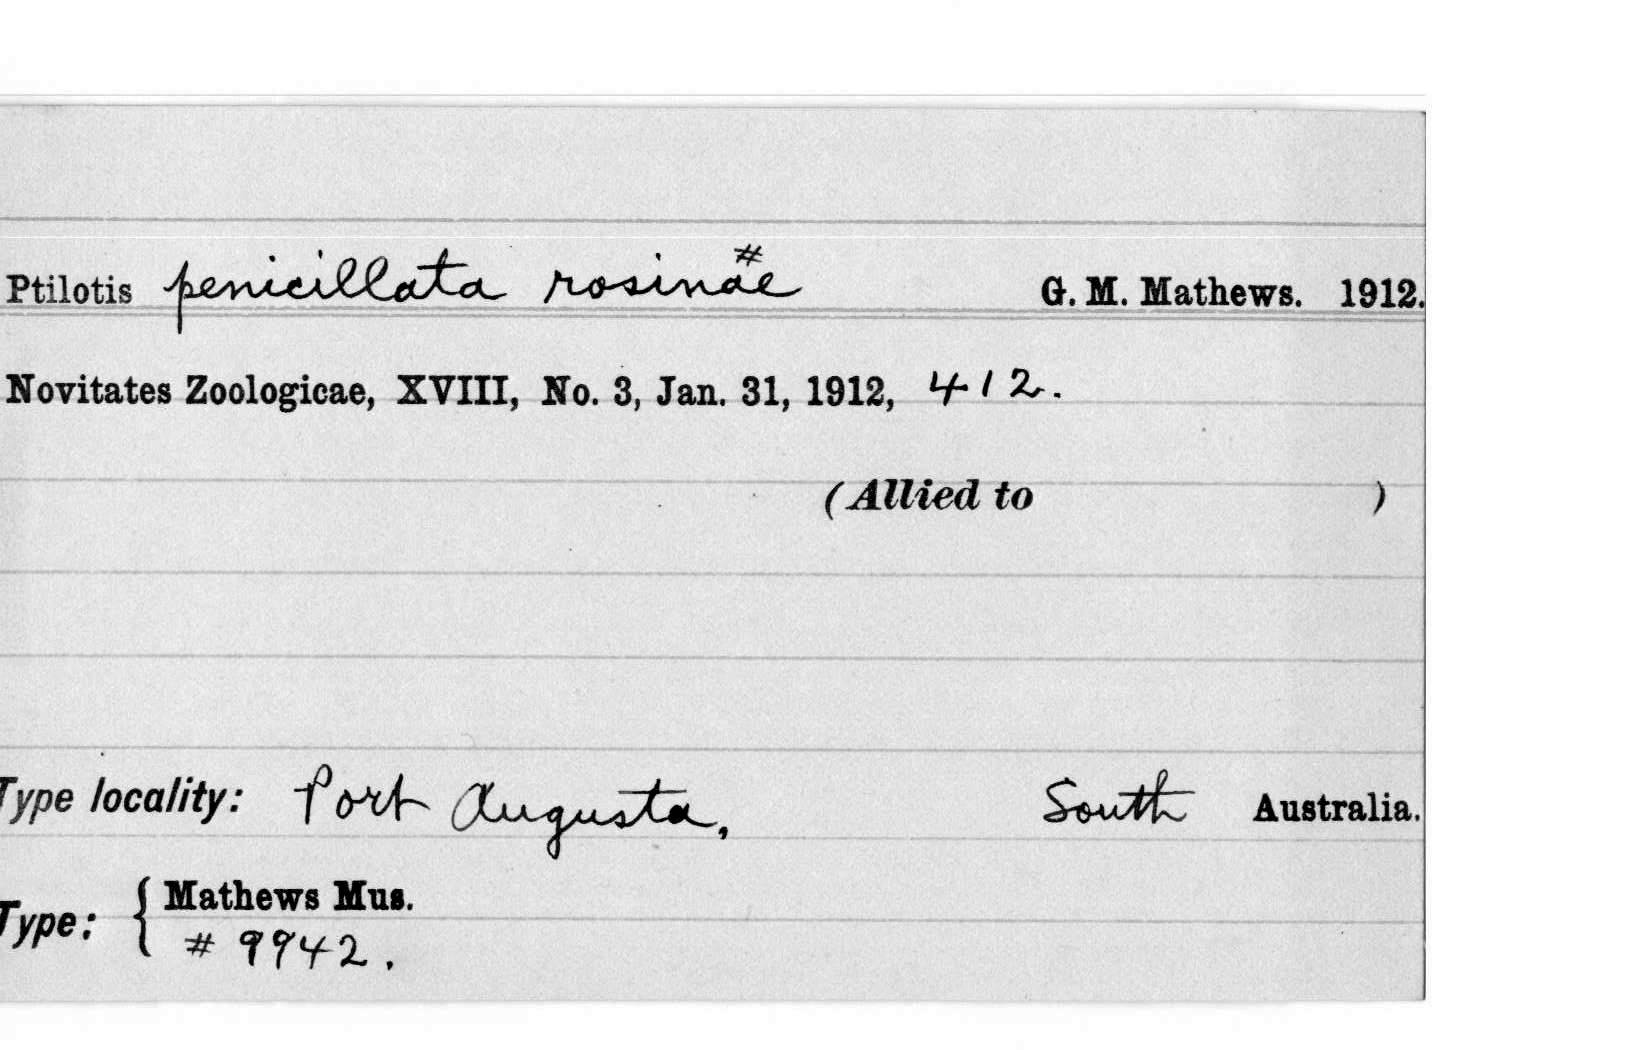 Ptilotis penicillata rosinæ # G. M. Mathews. 1912.
Novitates Zoologicae, XVIII, No. 3, Jan. 31, 1912, 412.
(Allied to )
Type locality: Port Augusta, South Australia.
Type: { Mathews Mus.
# 9942.